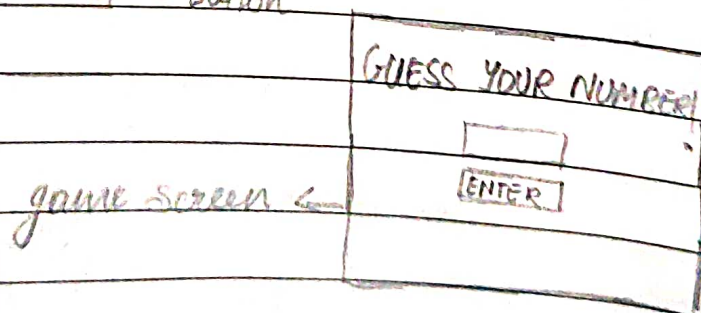 GUESS YOUR NUMBER!
ENTER
game screen ←